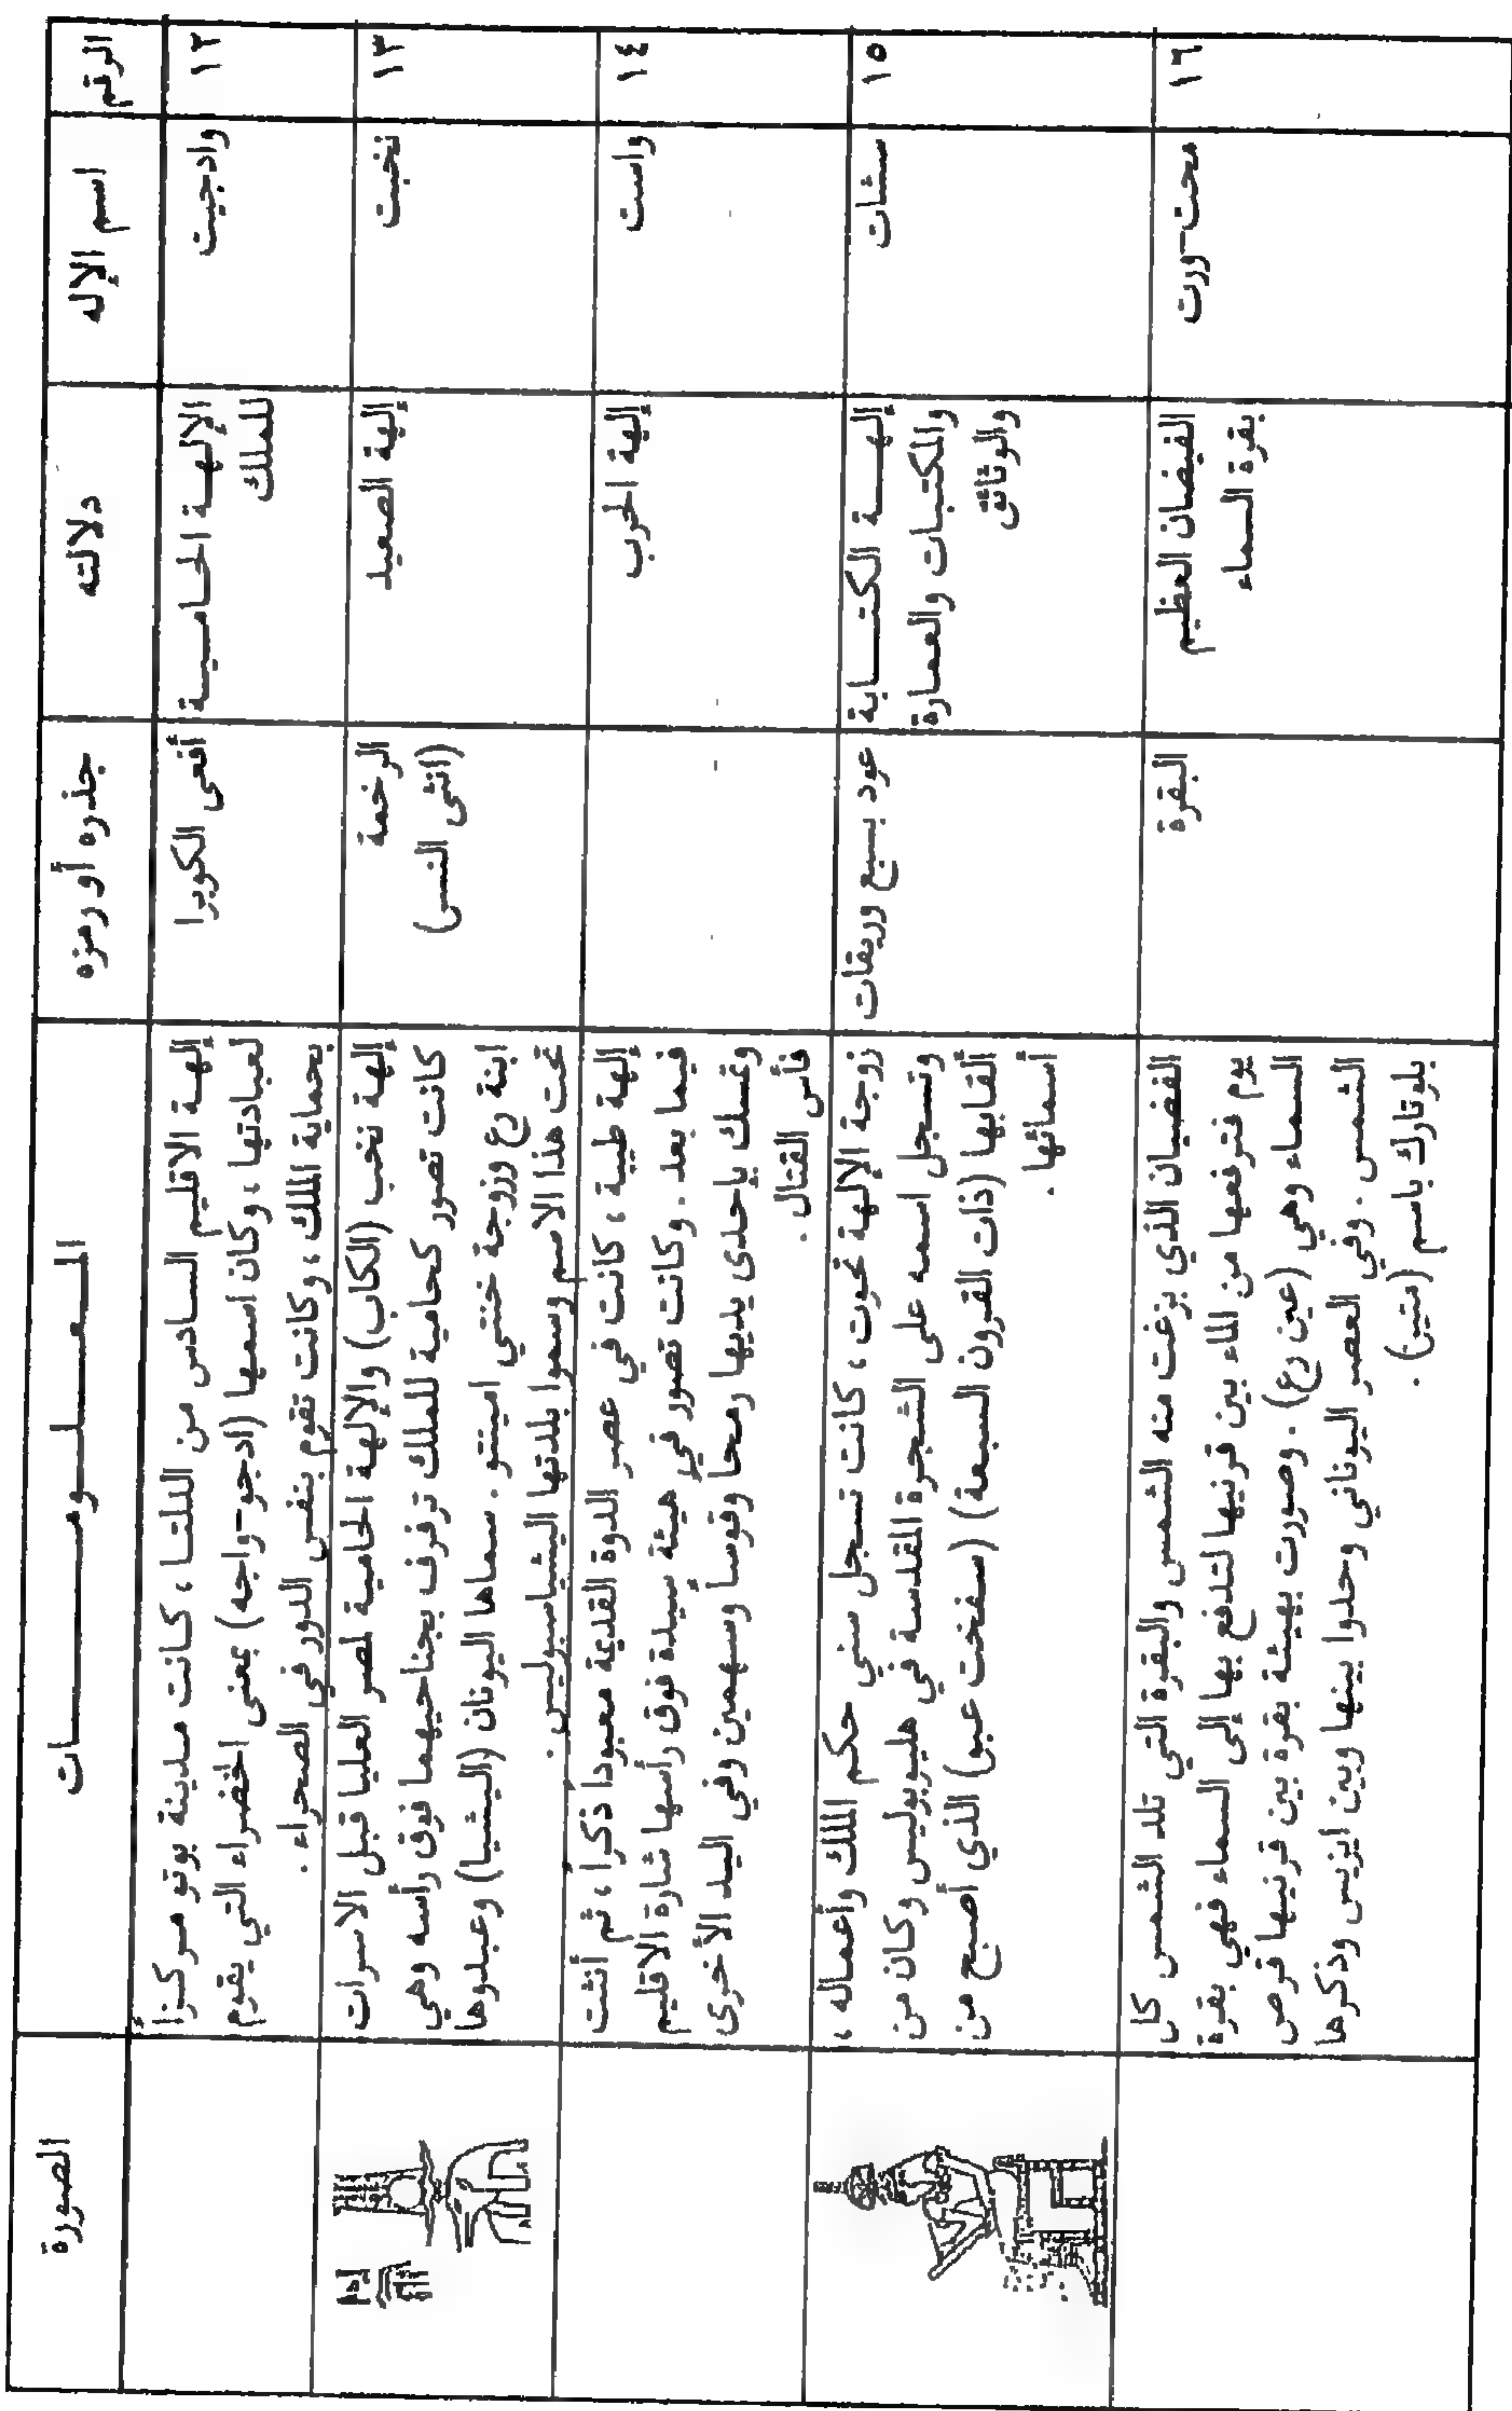 الرقم
اسم الإله
دلالته
جذره أو رمزه
المعلومات
الصورة
١٢
وادجيت
الإلهة الحامية
للملك
أفعى الكوبرا
إلهة الاقليم السادس من الدلتا، كانت مدينة بوتو مركزاً
لعبادتها، وكان اسمها (ادجو-واجه) بمعنى الخضراء التي يقوم
بحماية الملك، وكانت تقوم بنفس الدور في الصحراء.
١٣
نخبت
إلهة الصعيد
الرخمة
(انثى النسر)
إلهة نخب (الكاب) والإلهة الحامية لمصر العليا قبل الاسرات
كانت تصور كحامية للملك ترفرف بجناحيهما فوق رأسه وهي
ابنة رع وزوجة خنتي امينتو. سماها اليونان (اليشيا) وعبدوها
تحت هذا الاسم وسموا بلدتها اليشياسبوليس.
١٤
واست
إلهة الحرب
إلهة طيبة، كانت في عصر الدوة القديمة معبوداً ذكرا، ثم أنثت
فيما بعد. وكانت تصور في هيئة سيدة فوق رأسها شارة الاقليم
وتمسك بإحدى يديها رمحا وقوساً وسهمين وفي اليد الأخرى
فأس القتال.
١٥
سشات
إلهة الكتابة
والمكتبات والعمارة
والوثائق
عود بسبع وريقات
زوجة الإلهة تحوت، كانت تسجل سني حكم الملك وأعماله،
وتسجل اسمه على الشجرة المقدسة في هليوبوليس وكان من
ألقابها (ذات القرون السبعة) (سفخت عبو) الذي أصبح من
أسمائها.
١٦
محت-ورت
الفيضان العظيم
بقرة السماء
البقرة
الفضيان الذي بزغت منه الشمس والبقرة التي تلد الشمس كل
يوم فترفعها من الماء بين قرنيها لتدفع بها إلى السماء فهي بقرة
السماء وهي (عين رع). وصورت بهيئة بقرة بين قرنيها قرص
الشمس. وفي العصر اليوناني وحدوا بينها وبين ايزيس وذكرها
بلوتارك باسم (متير).